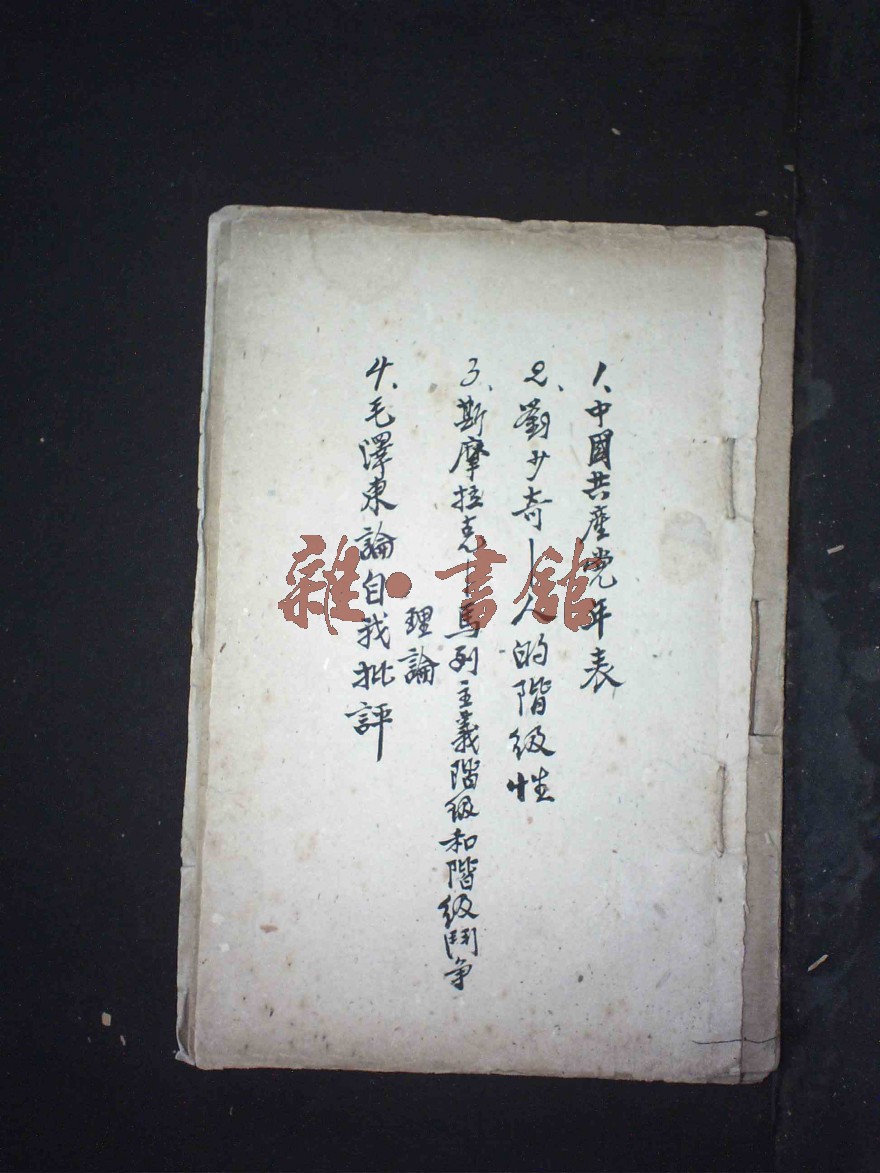 1、中國共產党年表
2、劉少奇—人的階級性
3、斯摩拉克—馬列主義階級和階級鬥争
理論
4、毛澤東論自我批評
雜·書館